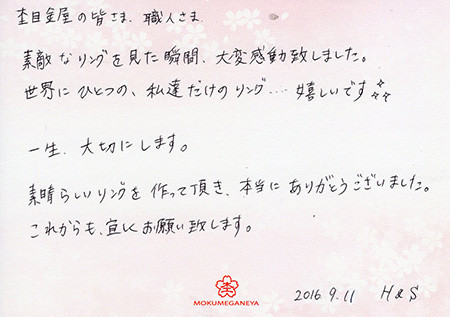 杢目金屋の皆さま、職人さま
素敵なリングを見た瞬間、大変感動致しました。
世界にひとつの、私達だけのリング…嬉しいです
一生、大切にします。
素晴らしいリングを作って頂き、本当にありがとうございました。
これからも、宜しくお願い致します。
MOKUMEGANEYA
2016.9.11 H&S